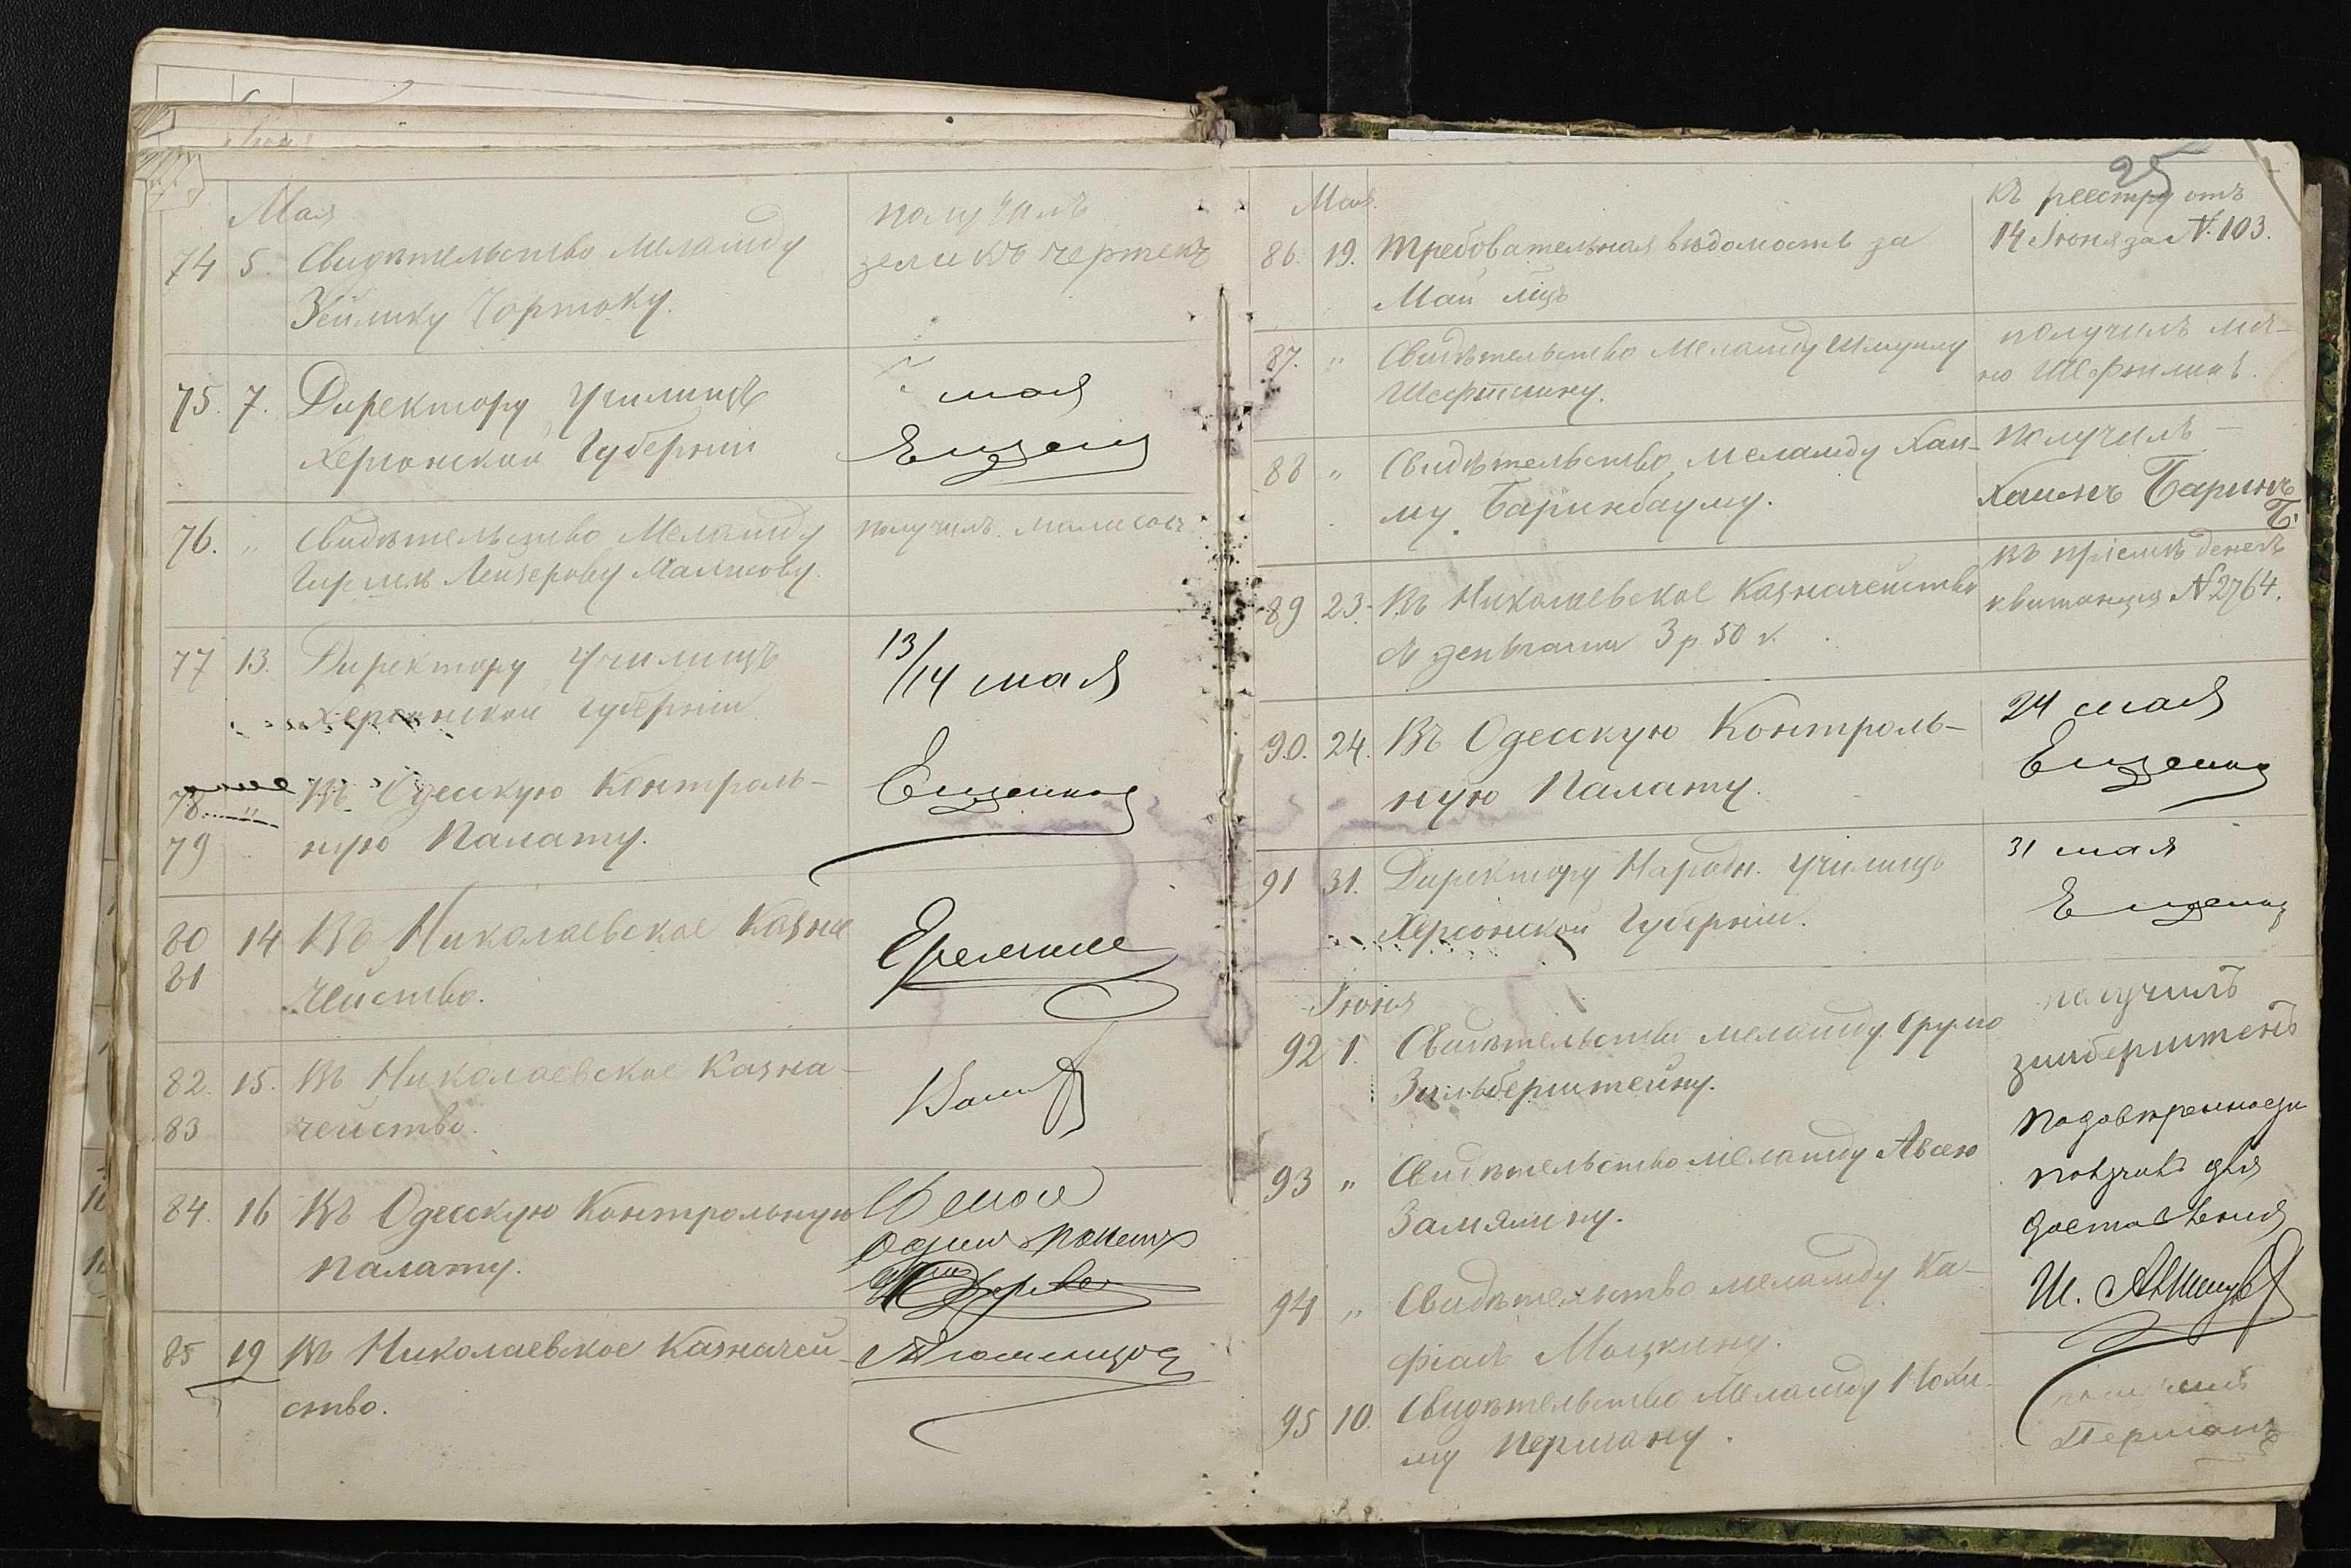 Мая
74 5. Свидѣтельство Меламду
Зейлику Чортоку.
получилъ
зеликъ чертекъ
75. 7. Директору Училищъ
Херсонской Губерніи
мая
76. " Свидѣтельство Меламду
Лейзерову Малисову.
получилъ
77 13. Директору Училищъ
Херсонской Губерніи
13/14 мая
78. " Въ Одесскую Контроль-
79 ную Палату.
80 14 Въ Николаевское Казна
81 чейство.
82. 15. Въ Николаевское Казна-
83 чейство.
84. 16 Въ Одесскую Контрольную
Палату.
Один пакетъ
85 19 Въ Николаевское Казначей-
ство.
25
Мая.
86. 19. Требовательная вѣдомость за
Май мцъ
Къ реестру отъ
14 Іюня за N. 103.
87. " Свидѣтельство Меламду Шмуилу
Шефтлину.
получилъ
88 " Свидѣтельство Меламду Хаи-
му Баринбауму.
получилъ –
Хаимъ Баринъ
Б.
89 23. Въ Николаевское Казначейство
съ деньгами 3 р 50 к.
къ пріемѣ денегъ
квитанція N 2764.
90. 24. Въ Одесскую Контроль-
ную Палату.
24 мая
91 31. Директору Народн. Училищъ
Херсонской Губерніи.
31 мая
Іюня
92 1. Свидѣтельство меламду Срулю
Зильберштейну.
получилъ
93 " Свидѣтельство меламду Авсею
Замялину.
По довѣренности
получилъ для
доставленія
94 " Свидѣтельство меламду Ка-
фіалъ Моцкину.
Ш.
95 10. Свидѣтельство Меламду Нохи-
му Перману.
получилъ
Перманъ